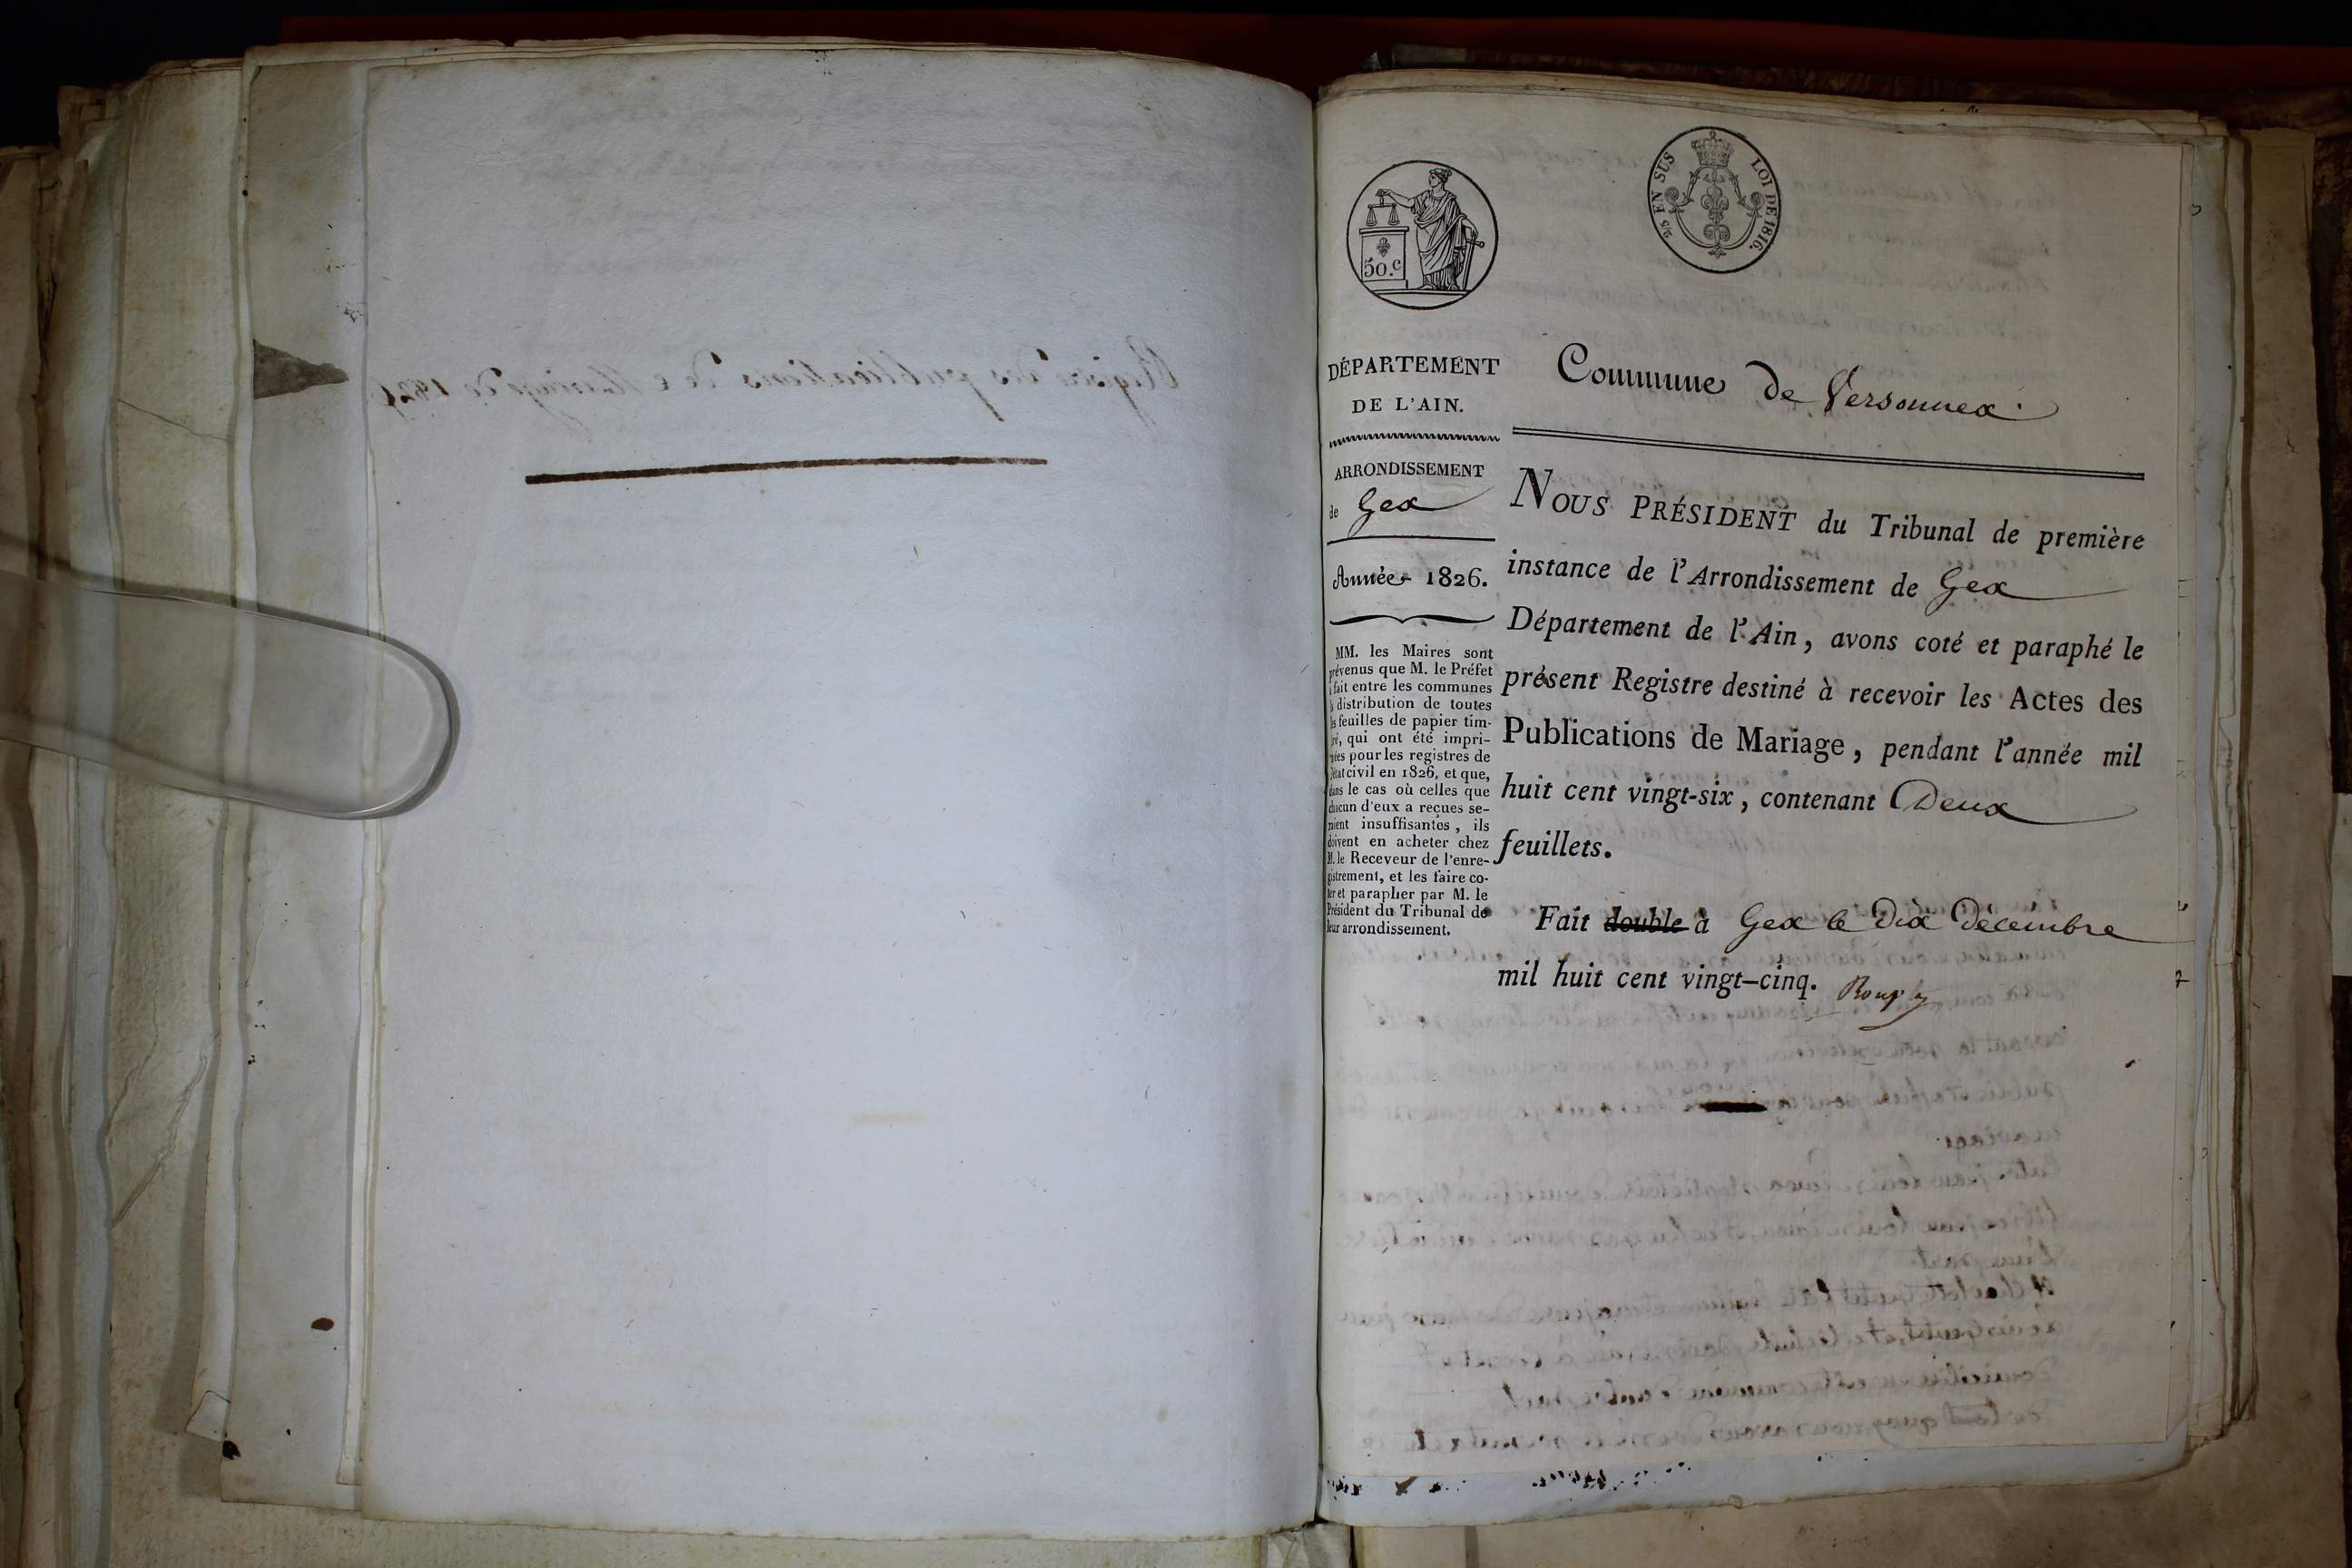 50.c
2/5 EN SUS LOI DE 1816.
DÉPARTEMENT
DE L'AIN.
ARRONDISSEMENT
de Gex
Année 1826.
MM. les Maires sont
prévenus que M. le Préfet
a fait entre les communes
la distribution de toutes
les feuilles de papier tim-
bré, qui ont été impri-
mées pour les registres de
l'état civil en 1826, et que,
dans le cas où celles que
chacun d'eux a reçues se-
raient insuffisantes, ils
doivent en acheter chez
M. le Receveur de l'enre-
gistrement, et les faire co-
ter et parapher par M. le
Président du Tribunal de
leur arrondissement.
Commune de Versonnex
NOUS PRÉSIDENT du Tribunal de première
instance de l'Arrondissement de Gex
Département de l'Ain, avons coté et paraphé le
présent Registre destiné à recevoir les Actes des
Publications de Mariage, pendant l'année mil
huit cent vingt-six, contenant Deux
feuillets.
Fait double à Gex le dix décembre
mil huit cent vingt-cinq.